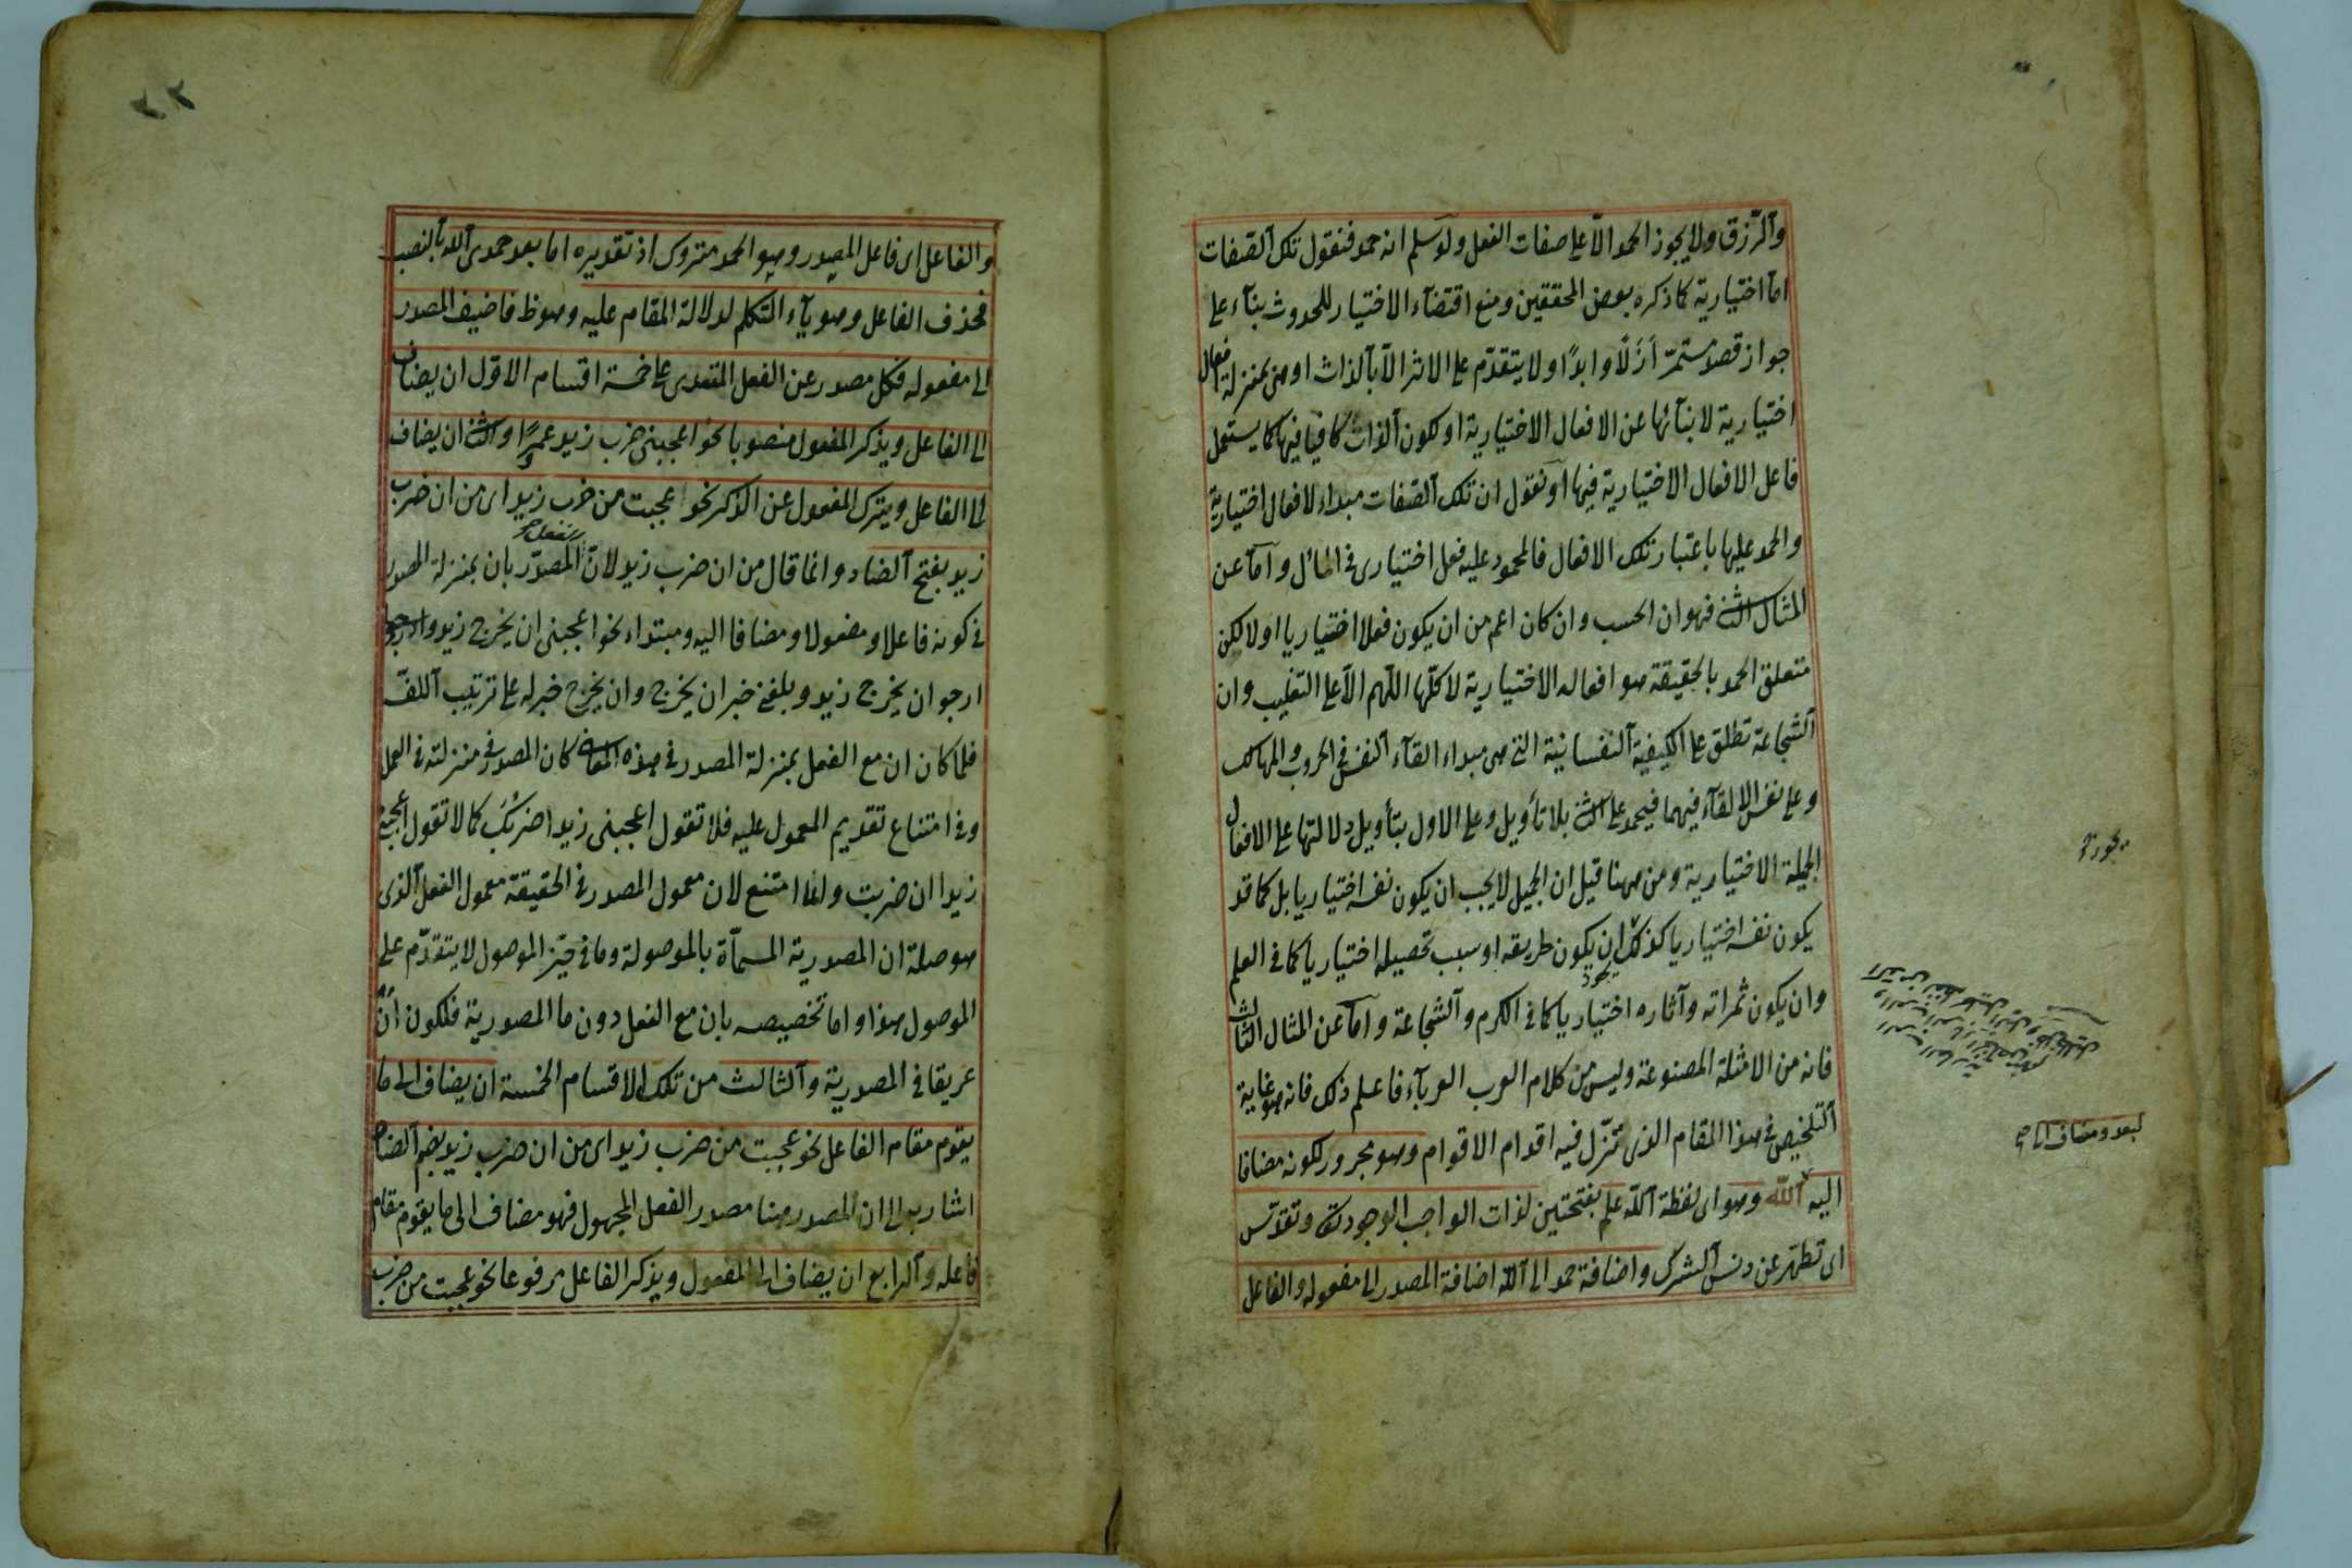 والرزق ولا يجوز الحمد الا على صفات الفعل ولو سلم انه حمد فنقول تلك الصفات
اما اختيارية كما ذكره بعض المحققين ومنع اقتضاء الاختيار للحدوث بناء على
جواز قصد مستمر ازلا وابدا ولا يتقدم على الاثر الا بالذات او هى بمنزلة افعال
اختيارية لابنائها عن الافعال الاختيارية او لكون الذات كافيا فيها كما يستعمل
فاعل الافعال الاختيارية فيها او نقول ان تلك الصفات مبداء لافعال اختيارية
والحمد عليها باعتبار تلك الافعال فالمحمود عليه فعل اختيارى فى المأل واما عن
المثال الثانى فهو ان الحسب وان كان اعم من ان يكون فعلا اختياريا او لا لكن
متعلق الحمد بالحقيقة هو افعاله الاختيارية لا كلها اللهم الا على التغليب وان
الشجاعة تطلق على الكيفية النفسانية التى هى مبداء القاء النفس فى الحروب والمهالك
وعلى نفس الالقاء فيهما فيحمد على الثانى بلا تأويل وعلى الاول بتأويل دلالتها على الافعال
الجميلة الاختيارية ومن ههنا قيل ان الجميل لا يجب ان يكون نفسه اختياريا بل كما قد
يكون نفسه اختياريا كذلك ان يكون طريقه او سبب تحصيله اختياريا كما فى العلم
وان يكون ثمراته وآثاره اختياريا كما فى الكرم والشجاعة واما عن المثال الثالث
فانه من الامثلة المصنوعة وليس من كلام العرب العرباء فاعلم ذلك فانه هو غاية
التلخيص فى هذا المقام الذى تزل فيه اقدام الاقوام وهو مجرور لكونه مضافا
اليه الله وهو اى لفظة الله علم بفتحتين لذات الواجب الوجود تعالى وتقدس
اى تطهر عن دنس الشرك واضافة حمد الى الله اضافة المصدر الى مفعوله والفاعل
لبعد ومضاف اليه صح
والفاعل اى فاعل المصدر وهو الحمد متروك اذ تقديره اما بعد حمدى الله بالنصب
فحذف الفاعل وهو ياء المتكلم لدلالة المقام عليه وهو ظ فاضيف المصدر
الى مفعوله فكل مصدر عن الفعل المتعدى على خمسة اقسام الاول ان يضاف
الى الفاعل ويذكر المفعول منصوبا نحو اعجبنى ضرب زيد عمرا والثانى ان يضاف
الى الفاعل ويترك المفعول عن الذكر نحو عجبت من ضرب زيد اى من ان ضرب
زيد بفتح الضاد وانما قال من ان ضرب زيد لان المصدر بان بمنزلة المصدر
فى كونه فاعلا ومفعولا ومضافا اليه ومبتداء نحو اعجبنى ان يخرج زيد
ارجو ان يخرج زيد وبلغنى خبر ان يخرج وان يخرج خير له على ترتيب اللف
فلما كان ان مع الفعل بمنزلة المصدر فى هذه المعانى كان المصدر فى منزلته فى العمل
وفى امتناع تقديم المعمول عليه فلا تقول اعجبنى زيدا ضربك كما لا تقول اعجبنى
زيدا ان ضربت وانما امتنع لان معمول المصدر فى الحقيقة معمول الفعل الذى
هو صلة ان المصدرية المسماة بالموصولة وما فى حيز الموصول لا يتقدم على
الموصول هذا واما تخصيصه بان مع الفعل دون ما المصدرية فلكون ان
عريقا فى المصدرية والثالث من تلك الاقسام الخمسة ان يضاف الى ما
يقوم مقام الفاعل نحو عجبت من ضرب زيد اى من ان ضرب زيد بضم الضاد
اشار به الى ان المصدر هنا مصدر الفعل المجهول فهو مضاف الى ما يقوم مقام
فاعله والرابع ان يضاف الى المفعول ويذكر الفاعل مرفوعا نحو عجبت من ضرب